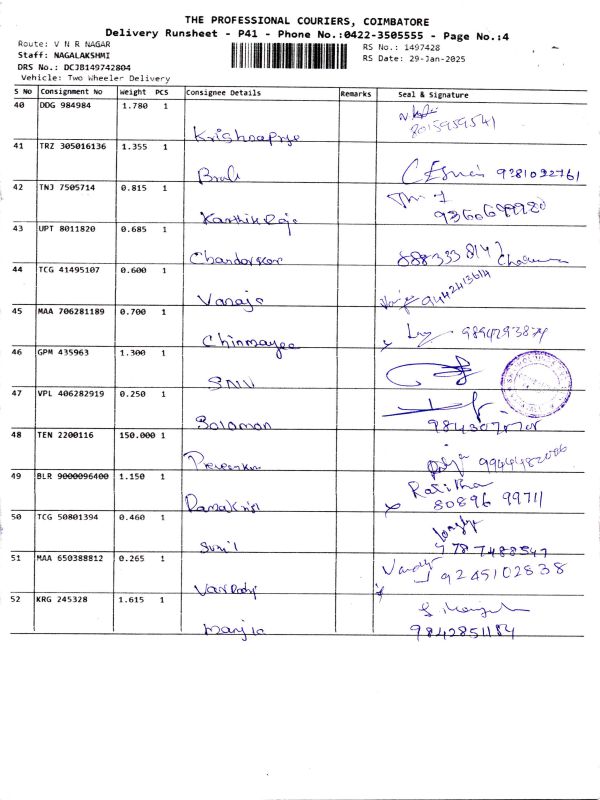 THE PROFESSIONAL COURIERS, COIMBATORE
Delivery Runsheet - P41 - Phone No.:0422-3505555 - Page No.:4
Route: V N R NAGAR
RS No.: 1497428
Staff: NAGALAKSHMI
RS Date: 29-Jan-2025
DRS No.: DCJB149742804
Vehicle: Two Wheeler Delivery
S NO Consignment No Weight PCS Consignee Details Remarks Seal & Signature
40 DDG 984984 1.780 1
8015959541
Krishnapriya
41 TRZ 305016136 1.355 1
9281092761
42 TNJ 7505714 0.815 1
Karthik Raja
43 UPT 8011820 0.685 1
Chandarsekar
44 TCG 41495107 0.600 1
9442413614
Vanaja
45 MAA 706281189 0.700 1
9894293874
Chinmayee
46 GPM 435963 1.300 1
SNV
47 VPL 406282919 0.250 1
Solomon
48 TEN 2200116 150.000 1
9944482006
49 BLR 9000096400 1.150 1
80896 99711
50 TCG 50801394 0.460 1
7787488547
Sunil
51 MAA 650388812 0.265 1
9245102838
52 KRG 245328 1.615 1
9842851184